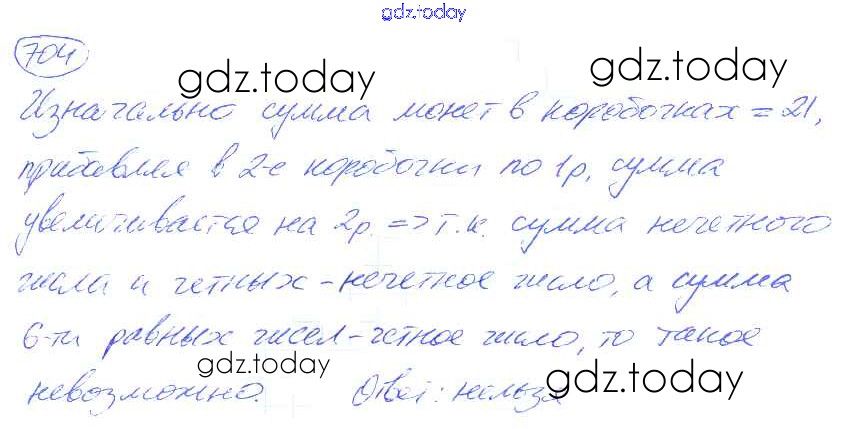 gdz.today
704
gdz.today
gdz.today
Изначально сумма монет в коробочках = 21,
прибавляя в 2-е коробочки по 1р, сумма
увеличивается на 2р. => т.к. сумма нечетного
числа и четных - нечетное число, а сумма
6-ти равных чисел - четное число, то такое
невозможно. Ответ: нельзя
gdz.today
gdz.today